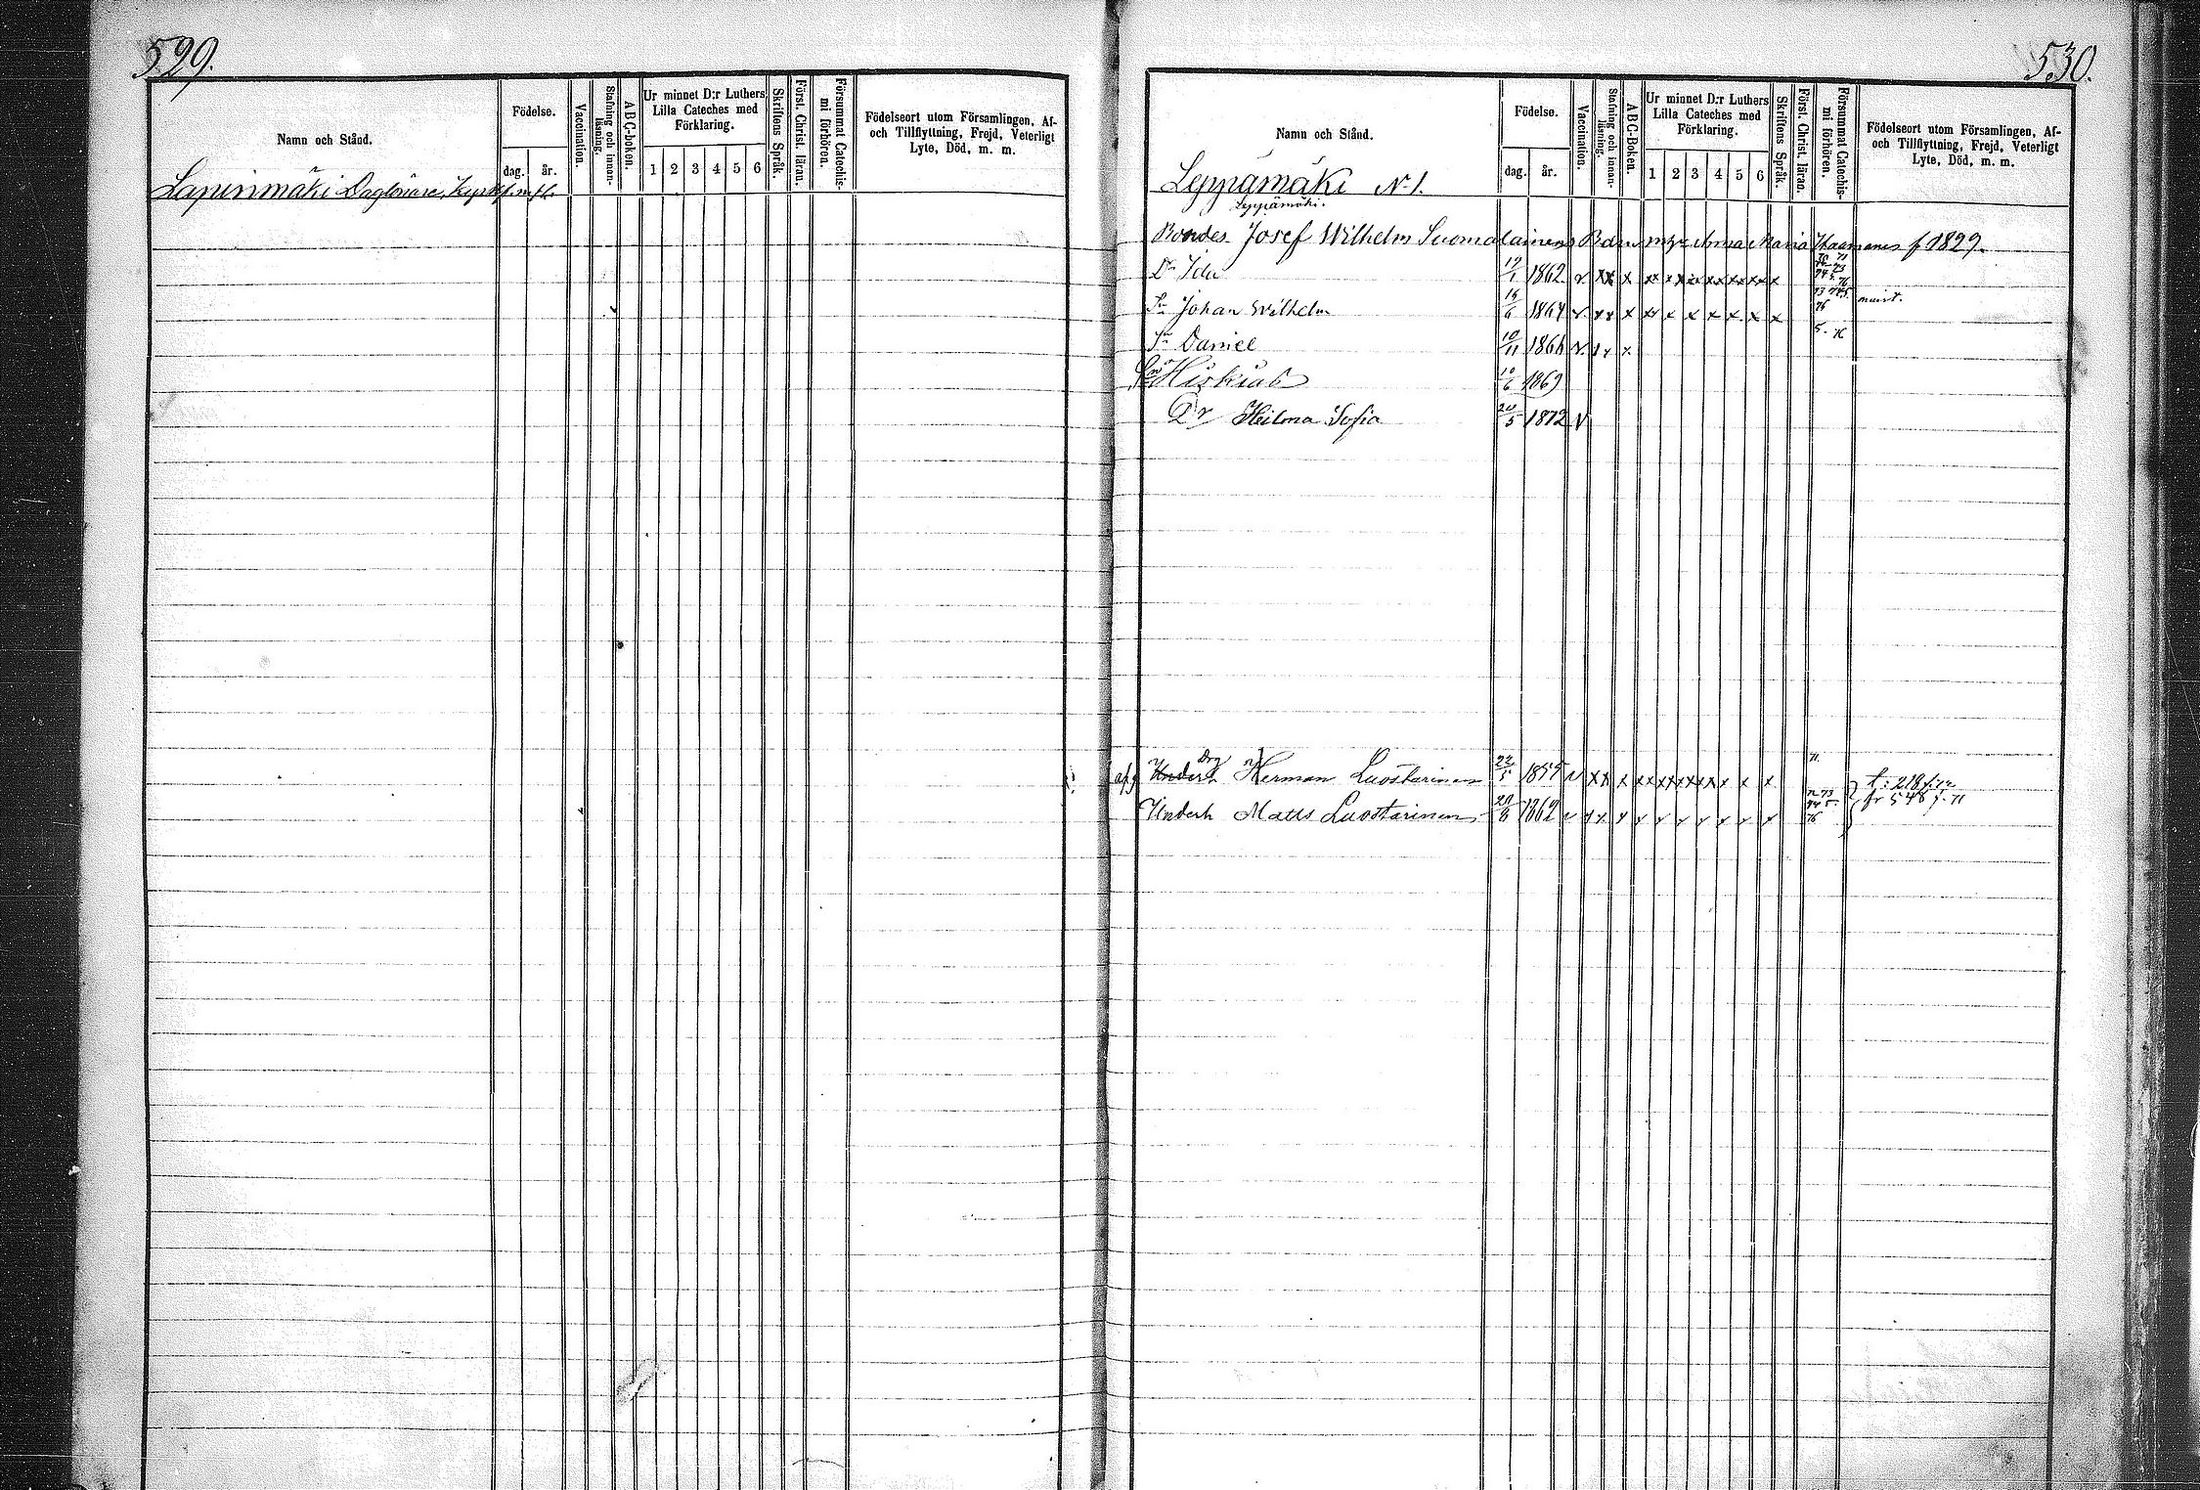 529.
Namn och Stånd.
Födelse.
dag. år.
Vaccination.
Stafning och innanläsning.
ABC-boken.
Ur minnet D:r Luthers Lilla Cateches med Förklaring.
1 2 3 4 5 6
Skriftens Språk.
Först. Christ. läran.
Försummat Catechismi förhören.
Födelseort utom Församlingen, Af- och Tillflyttning, Frejd, Veterligt Lyte, Död, m. m.
Lapinmäki Daglönare,
530.
Namn och Stånd.
Födelse.
dag. år.
Vaccination.
Stafning och innanläsning.
ABC-Boken.
Ur minnet D:r Luthers Lilla Cateches med Förklaring.
1 2 3 4 5 6
Skriftens Språk.
Först. Christ. läran.
Försummat Catechismi förhören.
Födelseort utom Församlingen, Af- och Tillflyttning, Frejd, Veterligt Lyte, Död, m. m.
Leppämäki N 1.
Leppämäki.
Bondes Josef Wilhelm Suomalainens Barn m Anna Maria f 1829.
Dr Ida 12/1 1862 v. xx x xx x x x x x x
Sn Johan Wilhelm 15/6 1864 v. xx x xx x x x x x x 76
Sn Daniel 10/11 1866 v. x x x 5. 76
Sn Hiskias 10/6 1869
Dr Heilma Sofia 20/5 1872 v
Underh Drg Herman Luostarinen 22/5 1855 v xx x xx xx xx x x x x 71 t: 218 f. 72
Underh Matts Luostarinen 20/8 1862 v x x x x x x x x x x 72 73 74 5. 76 fr 548 f. 71